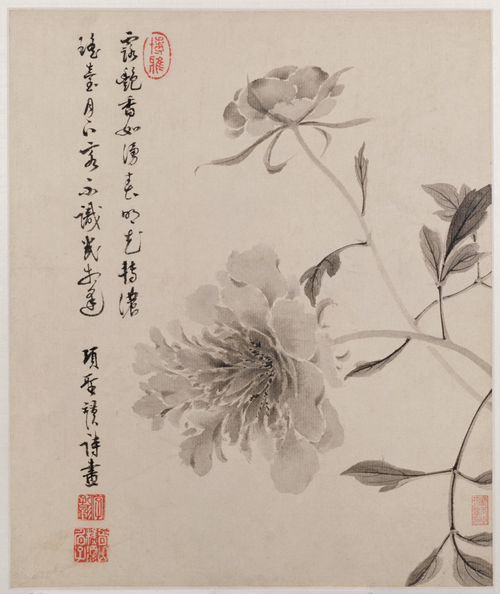 博雅
露艷香如湧春明光轉濃
瑤臺月下客不識幾逢
項聖謨詩畫